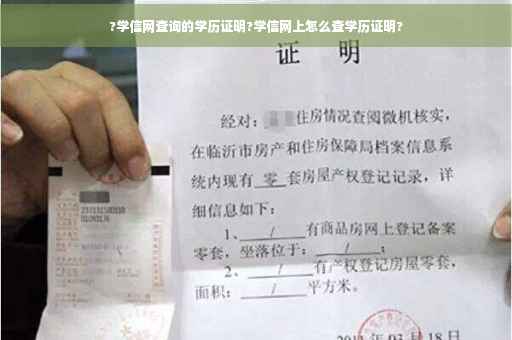 ?学信网查询的学历证明?学信网上怎么查学历证明?
证 明
经对: 住房情况查阅微机核实,
在临沂市房产和住房保障局档案信息系
统内现有 零 套房屋产权登记记录,详
细信息如下:
1、 / 有商品房网上登记备案
零套,坐落位于: / ;
2、 / 有产权登记房屋零套,
面积: / 平方米。
月18日